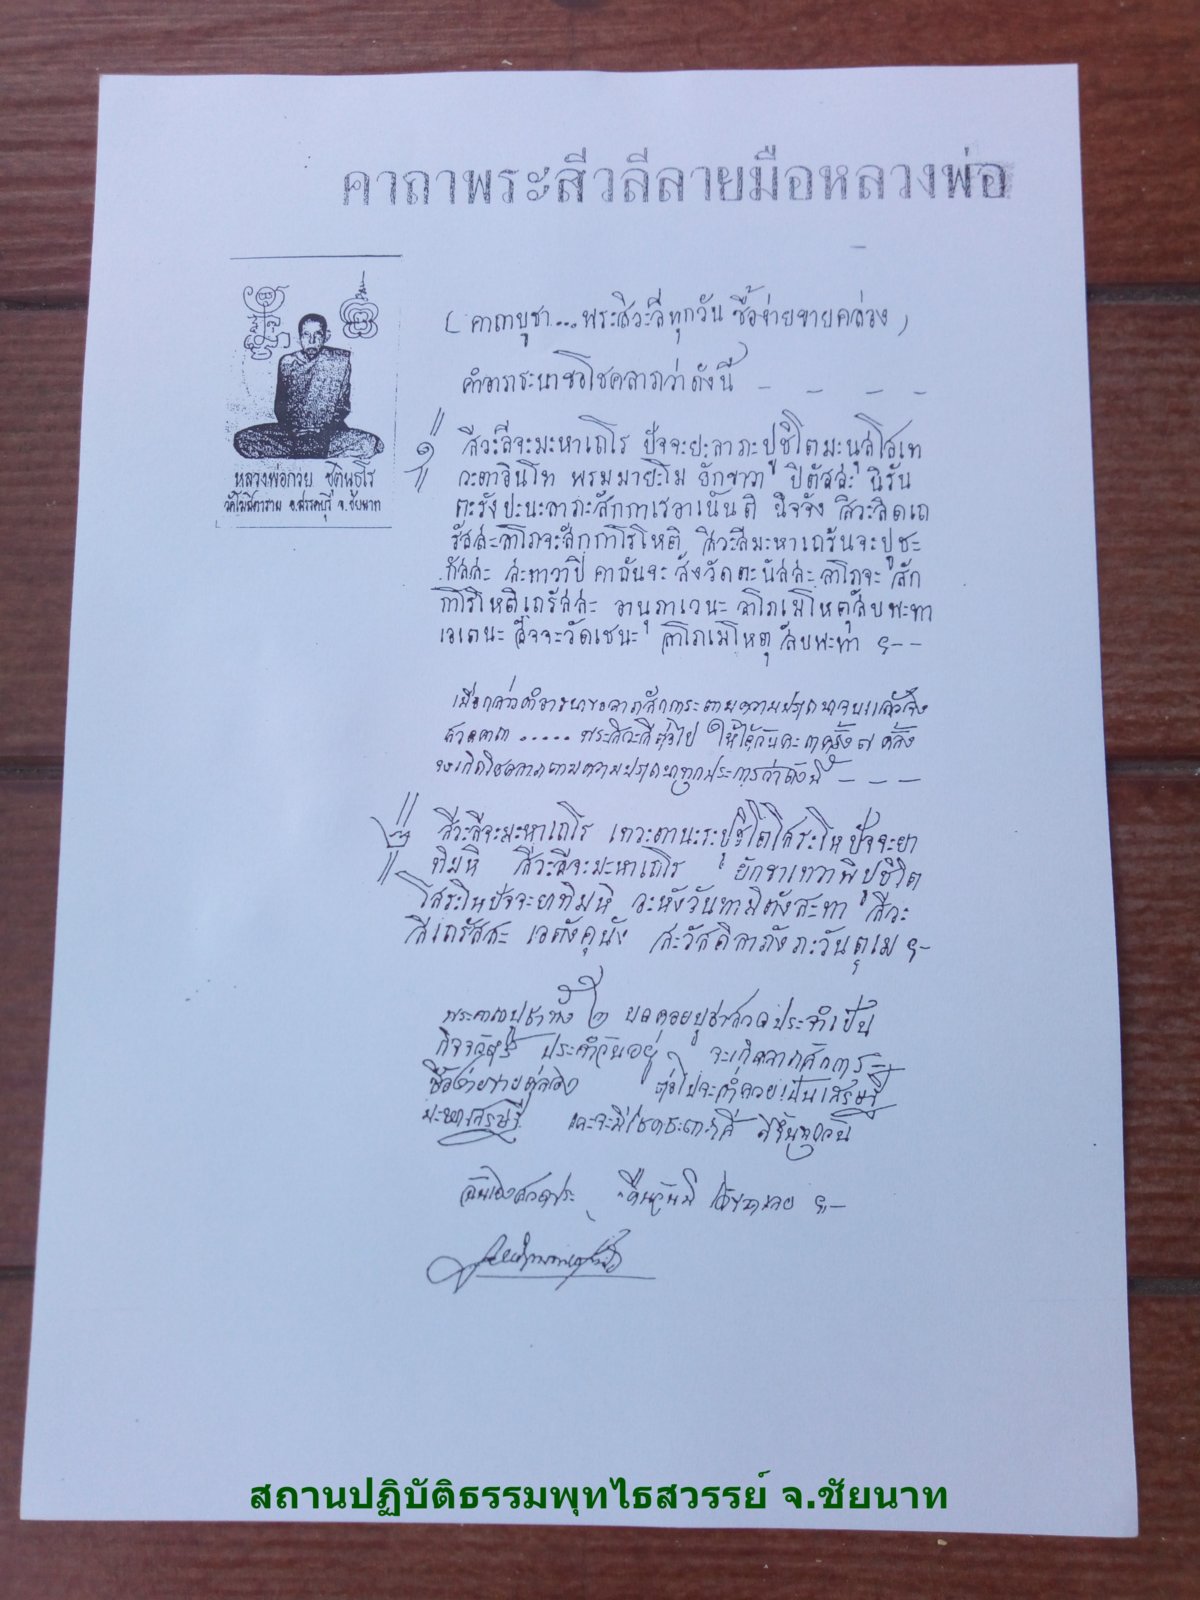 คาถาพระสีวลีลายมือหลวงพ่อ
( คาถาบูชา...พระสิวะลีทุกวัน ซื้อง่ายขายคล่อง )
คำอาราธะนาขอโชคลาภว่าดังนี้ – – – –
หลวงพ่อกวย ชุตินฺธโร
วัดโฆสิตาราม อ.สรรคบุรี จ.ชัยนาท
๑ สีวะลีจะมะหาเถโร ปัจจะยะลาภะปูชิโตมะนุสโสเท
วะตาอินโท พรมมายะโม ยักขาวา ปิตัสสะ นิรัน
ตะรังปะนะลาภะสักกาเรอาเนันติ นิจจัง สิวะลิดเถ
รัสสะลาโภจะสักกาโรโหติ สิวะลีมะหาเถรันจะปูชะ
กัสสะ สะทาวาปิ คาถันจะ สังวัดตะนัสสะ ลาโภจะ สัก
กาโรโหติเถรัสสะ อานุภาเวนะ ลาโภเมโหตุสัพพะทา
เอเตนะ สัจจะวัดเชนะ ลาโภเมโหตุ สัพพะทา ฯ––
เมื่อกล่าวคำอาราธนาขอลาภสักการะตามความปรารถนาจบแล้วจึง
สวดคาถา ..... พระสิวะลีต่อไป ให้ได้วันละ ๓ ครั้ง ๗ ครั้ง
จะเกิดโชคลาภตามความปรารถนาทุกประการว่าดังนี้ – – –
๒ สีวะลีจะมะหาเถโร เทวะตานะระปูชิโตโสระโหปัจจะยา
ทิมหิ สีวะลีจะมะหาเถโร ยักขาเทวาพิปูชิโต
โสระโหปัจจะยาทิมหิ อะหังวันทามิตังสะทา สีวะ
ลีเถรัสสะ เอตังคุนัง สะวัสดิลาภังภะวันตุเม ฯ–
พระคาถาบูชาทั้ง ๒ บทคอยบูชาสวดประจำเป็น
กิจจวัตร ประจำวันอยู่ จะเกิดลาภสักการะ
ซื้อง่ายขายคล่อง ต่อไปจะร่ำรวยเป็นเศรษฐี
มะหาเศรษฐี และจะมีโชค
สถานปฏิบัติธรรมพุทไธสวรรย์ จ.ชัยนาท